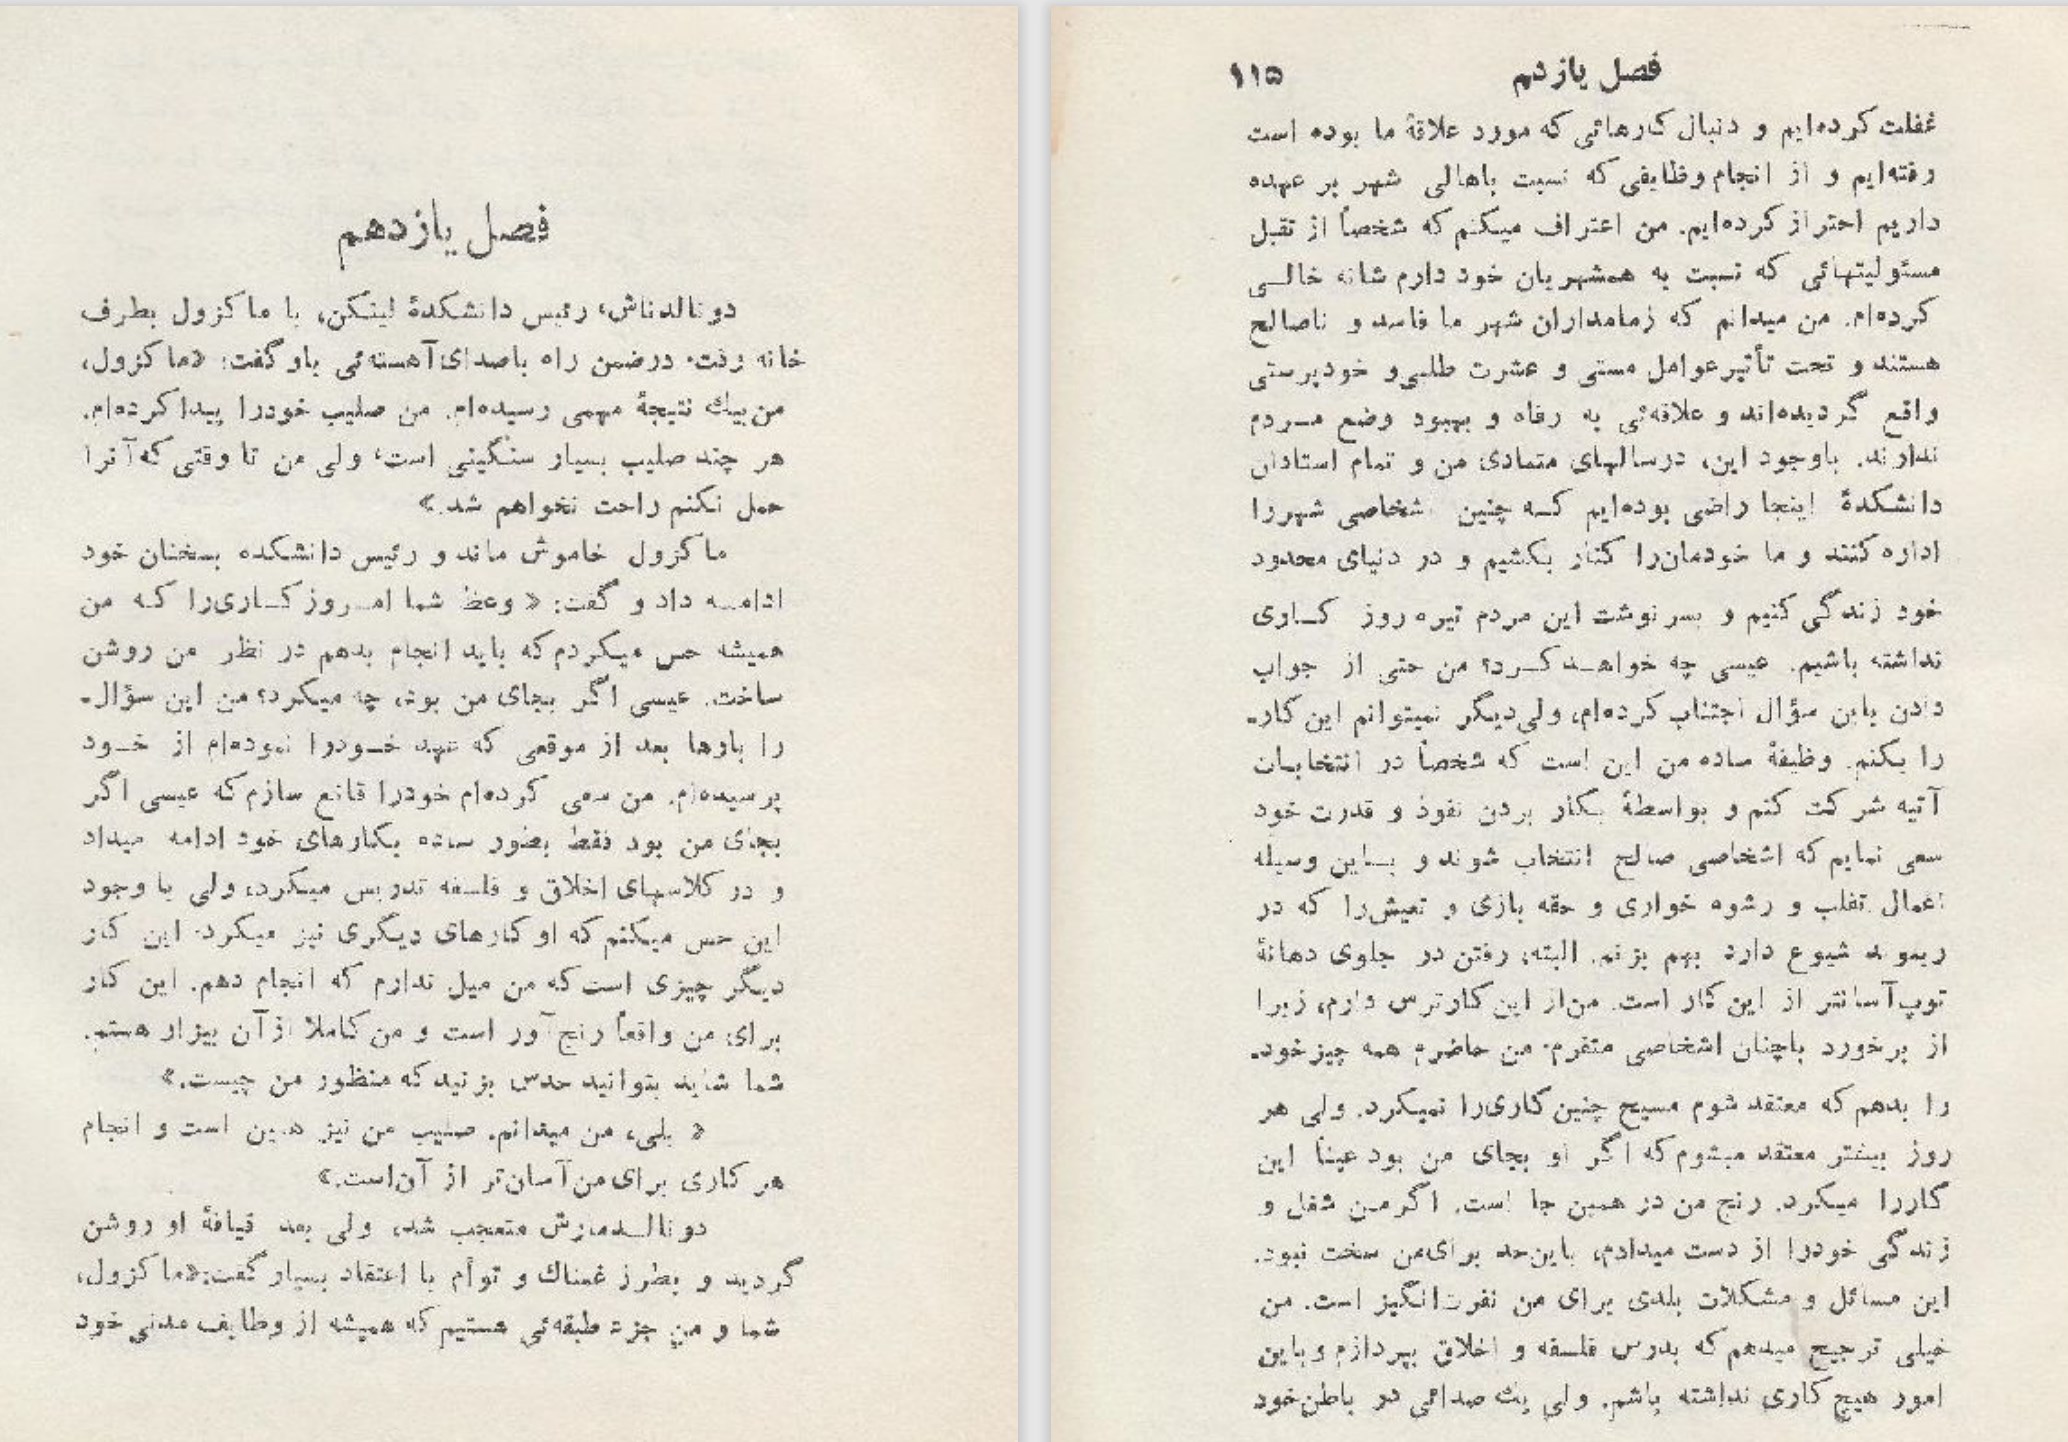 فصل یازدهم
دونالدناش، رئیس دانشکدهٔ لینکن، با ماکزول بطرف
خانه رفت. درضمن راه باصدای آهسته‌ئی باو گفت: «ماکزول،
من بیك نتیجهٔ مهمی رسیده‌ام. من صلیب خودرا پیدا کرده‌ام.
هر چند صلیب بسیار سنگینی است، ولی من تا وقتی که آنرا
حمل نکنم راحت نخواهم شد.»
ماکزول خاموش ماند و رئیس دانشکده بسخنان خود
ادامـه داد و گفت: « وعظ شما امـروز کـاری‌را کـه من
همیشه حس میکردم که باید انجام بدهم در نظر من روشن
ساخت. عیسی اگر بجای من بود، چه میکرد؟ من این سؤال-
را بارها بعد از موقعی که عهد خـودرا نموده‌ام از خـود
پرسیده‌ام. من سعی کرده‌ام خودرا قانع سازم که عیسی اگر
بجای من بود فقط بطور ساده بکارهای خود ادامه میداد
و در کلاسهای اخلاق و فلسفه تدریس میکرد، ولی با وجود
این حس میکنم که او کارهای دیگری نیز میکرد. این کار
دیگر چیزی است که من میل ندارم که انجام دهم. این کار
برای من واقعاً رنج آور است و من کاملا از آن بیزار هستم.
شما شاید بتوانید حدس بزنید که منظور من چیست.»
« بلی، من میدانم. صلیب من نیز همین است و انجام
هر کاری برای من آسان‌تر از آن‌است.»
دونالـدمارش متعجب شد، ولی بعد قیافهٔ او روشن
گردید و بطرز غمناك و توأم با اعتقاد بسیار گفت:«ماکزول،
شما و من جزء طبقه‌ئی هستیم که همیشه از وظایف مدنی خود
فصل یازدم ۱۱۵
غفلت کرده‌ایم و دنبال کارهائی که مورد علاقهٔ ما بوده است
رفته‌ایم و از انجام وظایفی که نسبت باهالی شهر بر عهده
داریم احتراز کرده‌ایم. من اعتراف میکنم که شخصاً از تقبل
مسئولیتهائی که نسبت به همشهریان خود دارم شانه خالـی
کرده‌ام. من میدانم که زمامداران شهر ما فاسد و ناصالح
هستند و تحت تأثیر عوامل مستی و عشرت طلبی و خودپرستی
واقع گردیده‌اند و علاقه‌ئی به رفاه و بهبود وضع مـردم
ندارند. باوجود این، درسالهای متمادی من و تمام استادان
دانشکدهٔ اینجا راضی بوده‌ایم کـه چنین اشخاصی شهررا
اداره کنند و ما خودمان‌را کنار بکشیم و در دنیای محدود
خود زندگی کنیم و بسرنوشت این مردم تیره روز کـاری
نداشته باشیم. عیسی چه خواهـد کـرد؟ من حتی از جواب
دادن باین سؤال اجتناب کرده‌ام، ولی‌دیگر نمیتوانم این کار-
را بکنم. وظیفهٔ ساده من این است که شخصاً در انتخابـات
آتیه شرکت کنم و بواسطهٔ بکار بردن نفوذ و قدرت خود
سعی نمایم که اشخاصی صالح انتخاب شوند و بـاین وسیله
اعمال تقلب و رشوه خواری و حقه بازی و تعیش‌را که در
ریموند شیوع دارد بهم بزنم. البته، رفتن در جلوی دهانهٔ
توپ آسانتر از این کار است. من‌از این کارترس دارم، زیرا
از برخورد باچنان اشخاصی متفرم. من حاضرم همه چیز خود-
را بدهم که معتقد شوم مسیح چنین کاری‌را نمیکرد. ولی هر
روز بیشتر معتقد میشوم که اگر او بجای من بود عیناً این
کاررا میکرد. رنج من در همین جا است. اگرمـن شغل و
زندگی خودرا از دست میدادم، باین‌حد برای‌من سخت نبود.
این مسائل و مشکلات بلدی برای من نفرت‌انگیز است. من
خیلی ترجیح میدهم که بدرس فلسفه و اخلاق بپردازم و باین
امور هیچ کاری نداشته باشم. ولی یك صدائی در باطن‌خود